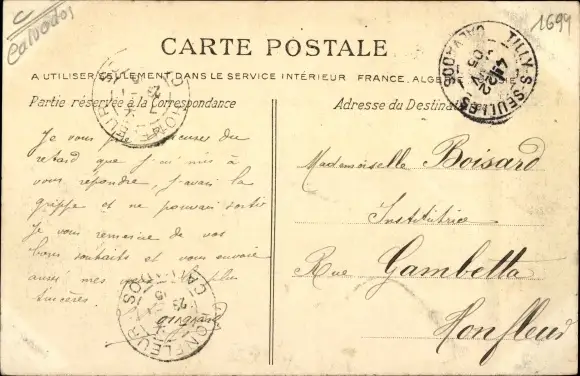 Calvados
1699
CARTE POSTALE
A UTILISER SEULEMENT DANS LE SERVICE INTÉRIEUR FRANCE, ALGÉRIE
Partie réservée à la Correspondance
Adresse du Destinataire
TILLY-S-SEULLES
CALVADOS
Je vous prie excuser du
retard que j'ai mis à
vous répondre j'avais la
grippe et ne pouvais sortir
Je vous remercie de vos
bons souhaits et vous envoie
aussi mes plus
sincères
Mademoiselle Boisard
Institutrice
Rue Gambetta
Honfleur
HONFLEUR
CALVADOS